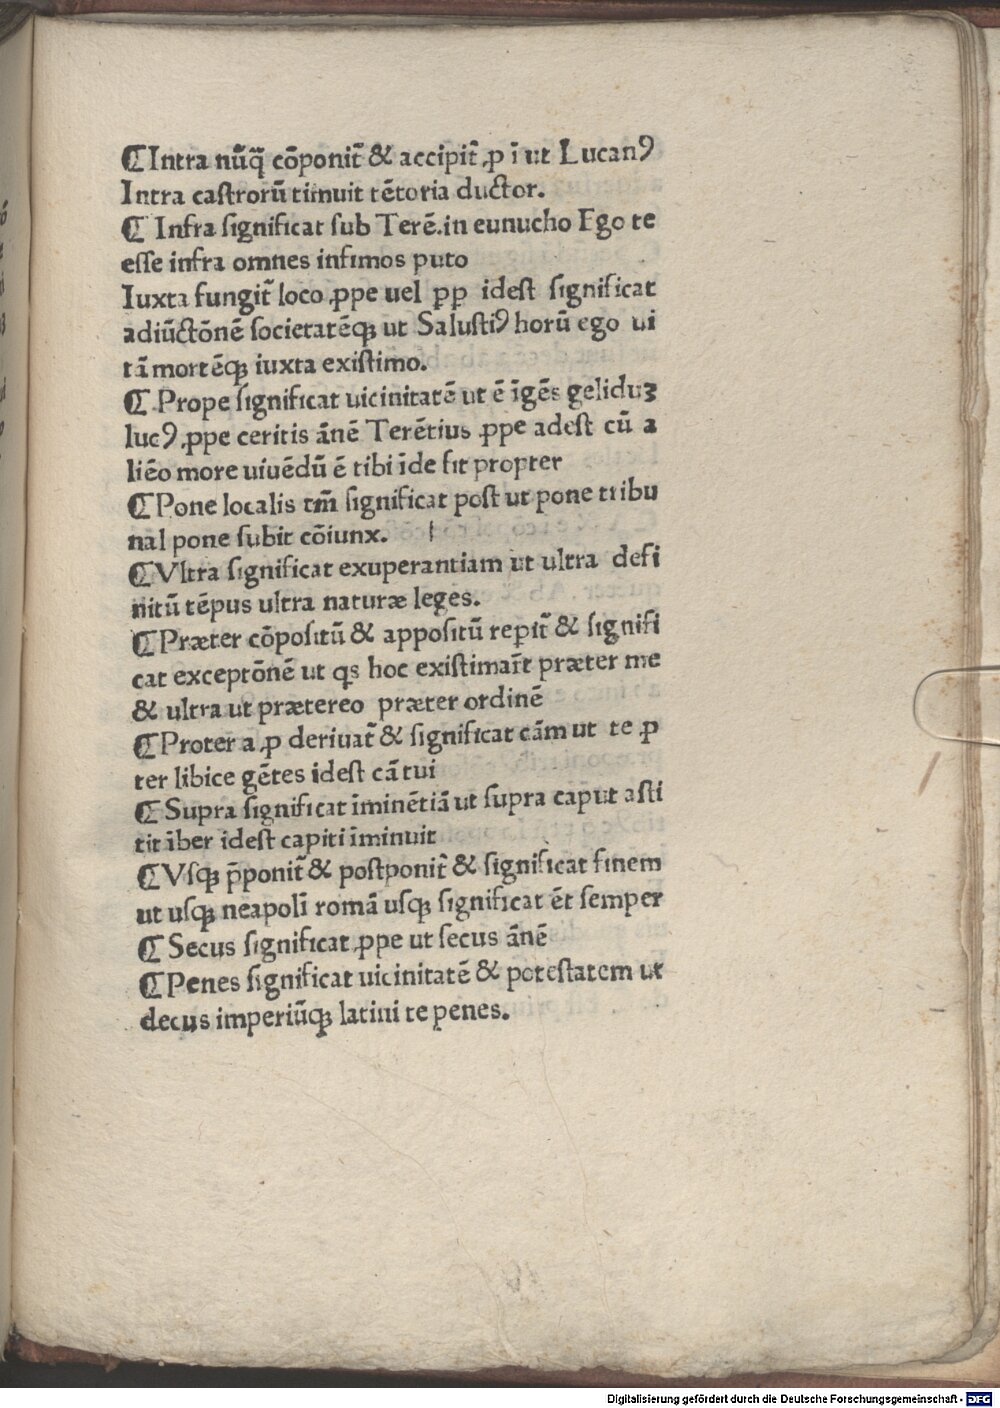 ¶Intra nũq̃ cõponit̃ & accipit̃ ꝓ ĩ ut Lucanꝰ
Intra castrorũ timuit tẽtoria ductor.
¶ Infra significat sub Terẽ.in eunucho Ego te
esse infra omnes infimos puto
Iuxta fungit̃ loco ꝓpe uel ꝓp̱ idest significat
adiũctõnẽ societatẽqꝫ ut Salustiꝰ horũ ego ui
tã mortẽqꝫ iuxta existimo.
¶ Prope significat uicinitatẽ ut ẽ ĩgẽs geliduꝫ
lucꝰ ꝓpe ceritis ãnẽ Terẽtius ꝓpe adest cũ a
liẽo more uiuẽdũ ẽ tibi ĩde fit propter
¶Pone localis tm̃ significat post ut pone tribu
nal pone subit cõiunx.
¶Vltra significat exuperantiam ut ultra defi
nitũ tẽpus ultra naturæ leges.
¶Præter cõpositũ & appositũ reꝑit̃ & signifi
cat exceptõnẽ ut qs hoc existimar̃t præter me
& ultra ut prætereo præter ordinẽ
¶Proter a ꝓ deriuat̃ & significat cãm ut te ꝓ
ter libice gẽtes idest cã tui
¶Supra significat ĩminẽtiã ut supra caput asti
tit ĩber idest capiti ĩminuit
¶Vsqꝫ p̃ponit̃ & postponit̃ & significat finem
ut usqꝫ neapolĩ romã usqꝫ significat ẽt semper
¶ Secus significat ꝓpe ut secus ãnẽ
¶Penes significat uicinitatẽ & potestatem ut
decus imperiũqꝫ latini te penes.
Digitalisierung gefördert durch die Deutsche Forschungsgemeinschaft - DFG